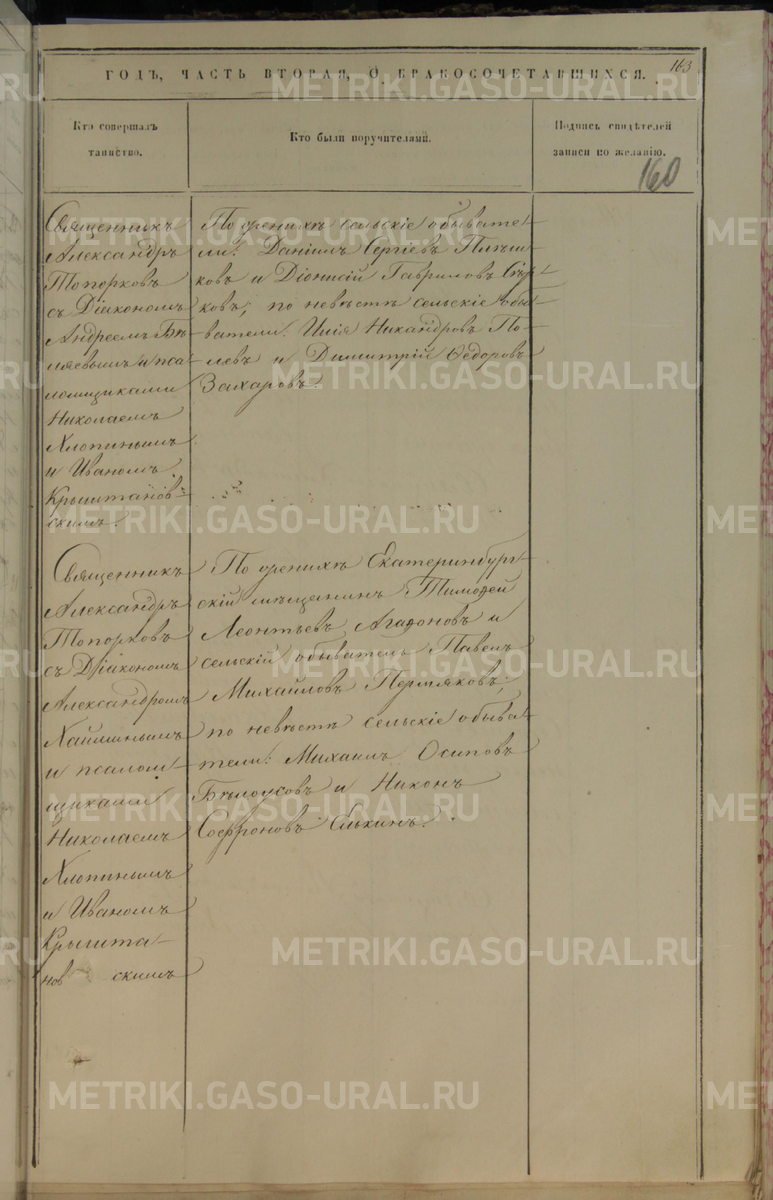 163
ГОДЪ, ЧАСТЬ ВТОРАЯ, О БРАКОСОЧЕТАВШИХСЯ.
Кто совершалъ
таинство.
Кто были поручителями.
Подпись свидѣтелей
записи по желанію.
160
Священникъ
Александръ
Топорковъ
съ Діакономъ
Андреемъ Бѣ-
ляевымъ и пса-
ломщиками
Николаемъ
Хлопинымъ
и Иваномъ
Крыштанов-
скимъ.
По женихѣ сельскіе обывате-
ли: Даніилъ Сергіевъ
ковъ и Діонисій Гавриловъ
ковъ; по невѣстѣ сельскіе обы-
ватели: Никандровъ По-
левъ и Димитрій Ѳедоровъ
Захаровъ.
Священникъ
Александръ
Топорковъ
съ Діакономъ
Александромъ
и псалом-
щиками
Николаемъ
Хлопинымъ
и Иваномъ
Крышта-
новскимъ
По женихѣ Екатеринбург-
скій мѣщанинъ Тимофей
Леонтьевъ Агафоновъ и
сельскій обыватель Павелъ
Михайловъ Пермяковъ;
по невѣстѣ сельскіе обыва-
тели: Михаилъ Осиповъ
Бѣлоусовъ и Никонъ
Софроновъ Елькинъ.
METRIKI.GASO-URAL.RU